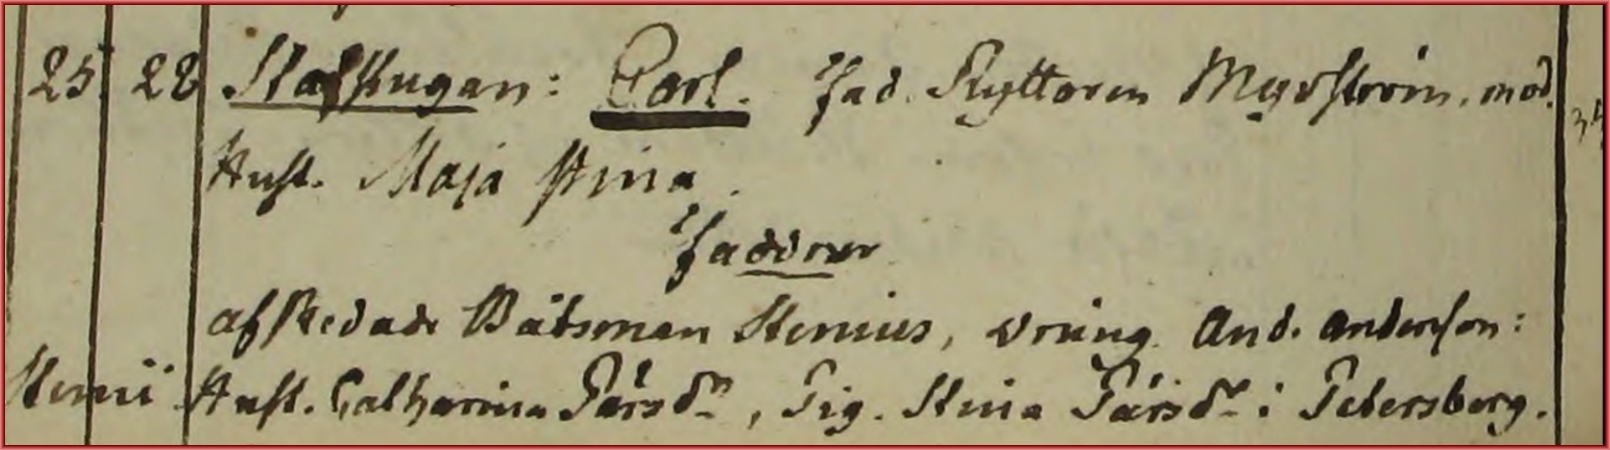 25. 28 Stafstugan: Carl. Fad. Ryttaren Myrström, mod.
Hust. Maja Stina.
Faddrar
afskedade Båtsman Stenius, dräng And. Anderson:
Stenii Hust. Catharina Pärsdr, Pig. Stina Pärsdr i Petersberg.